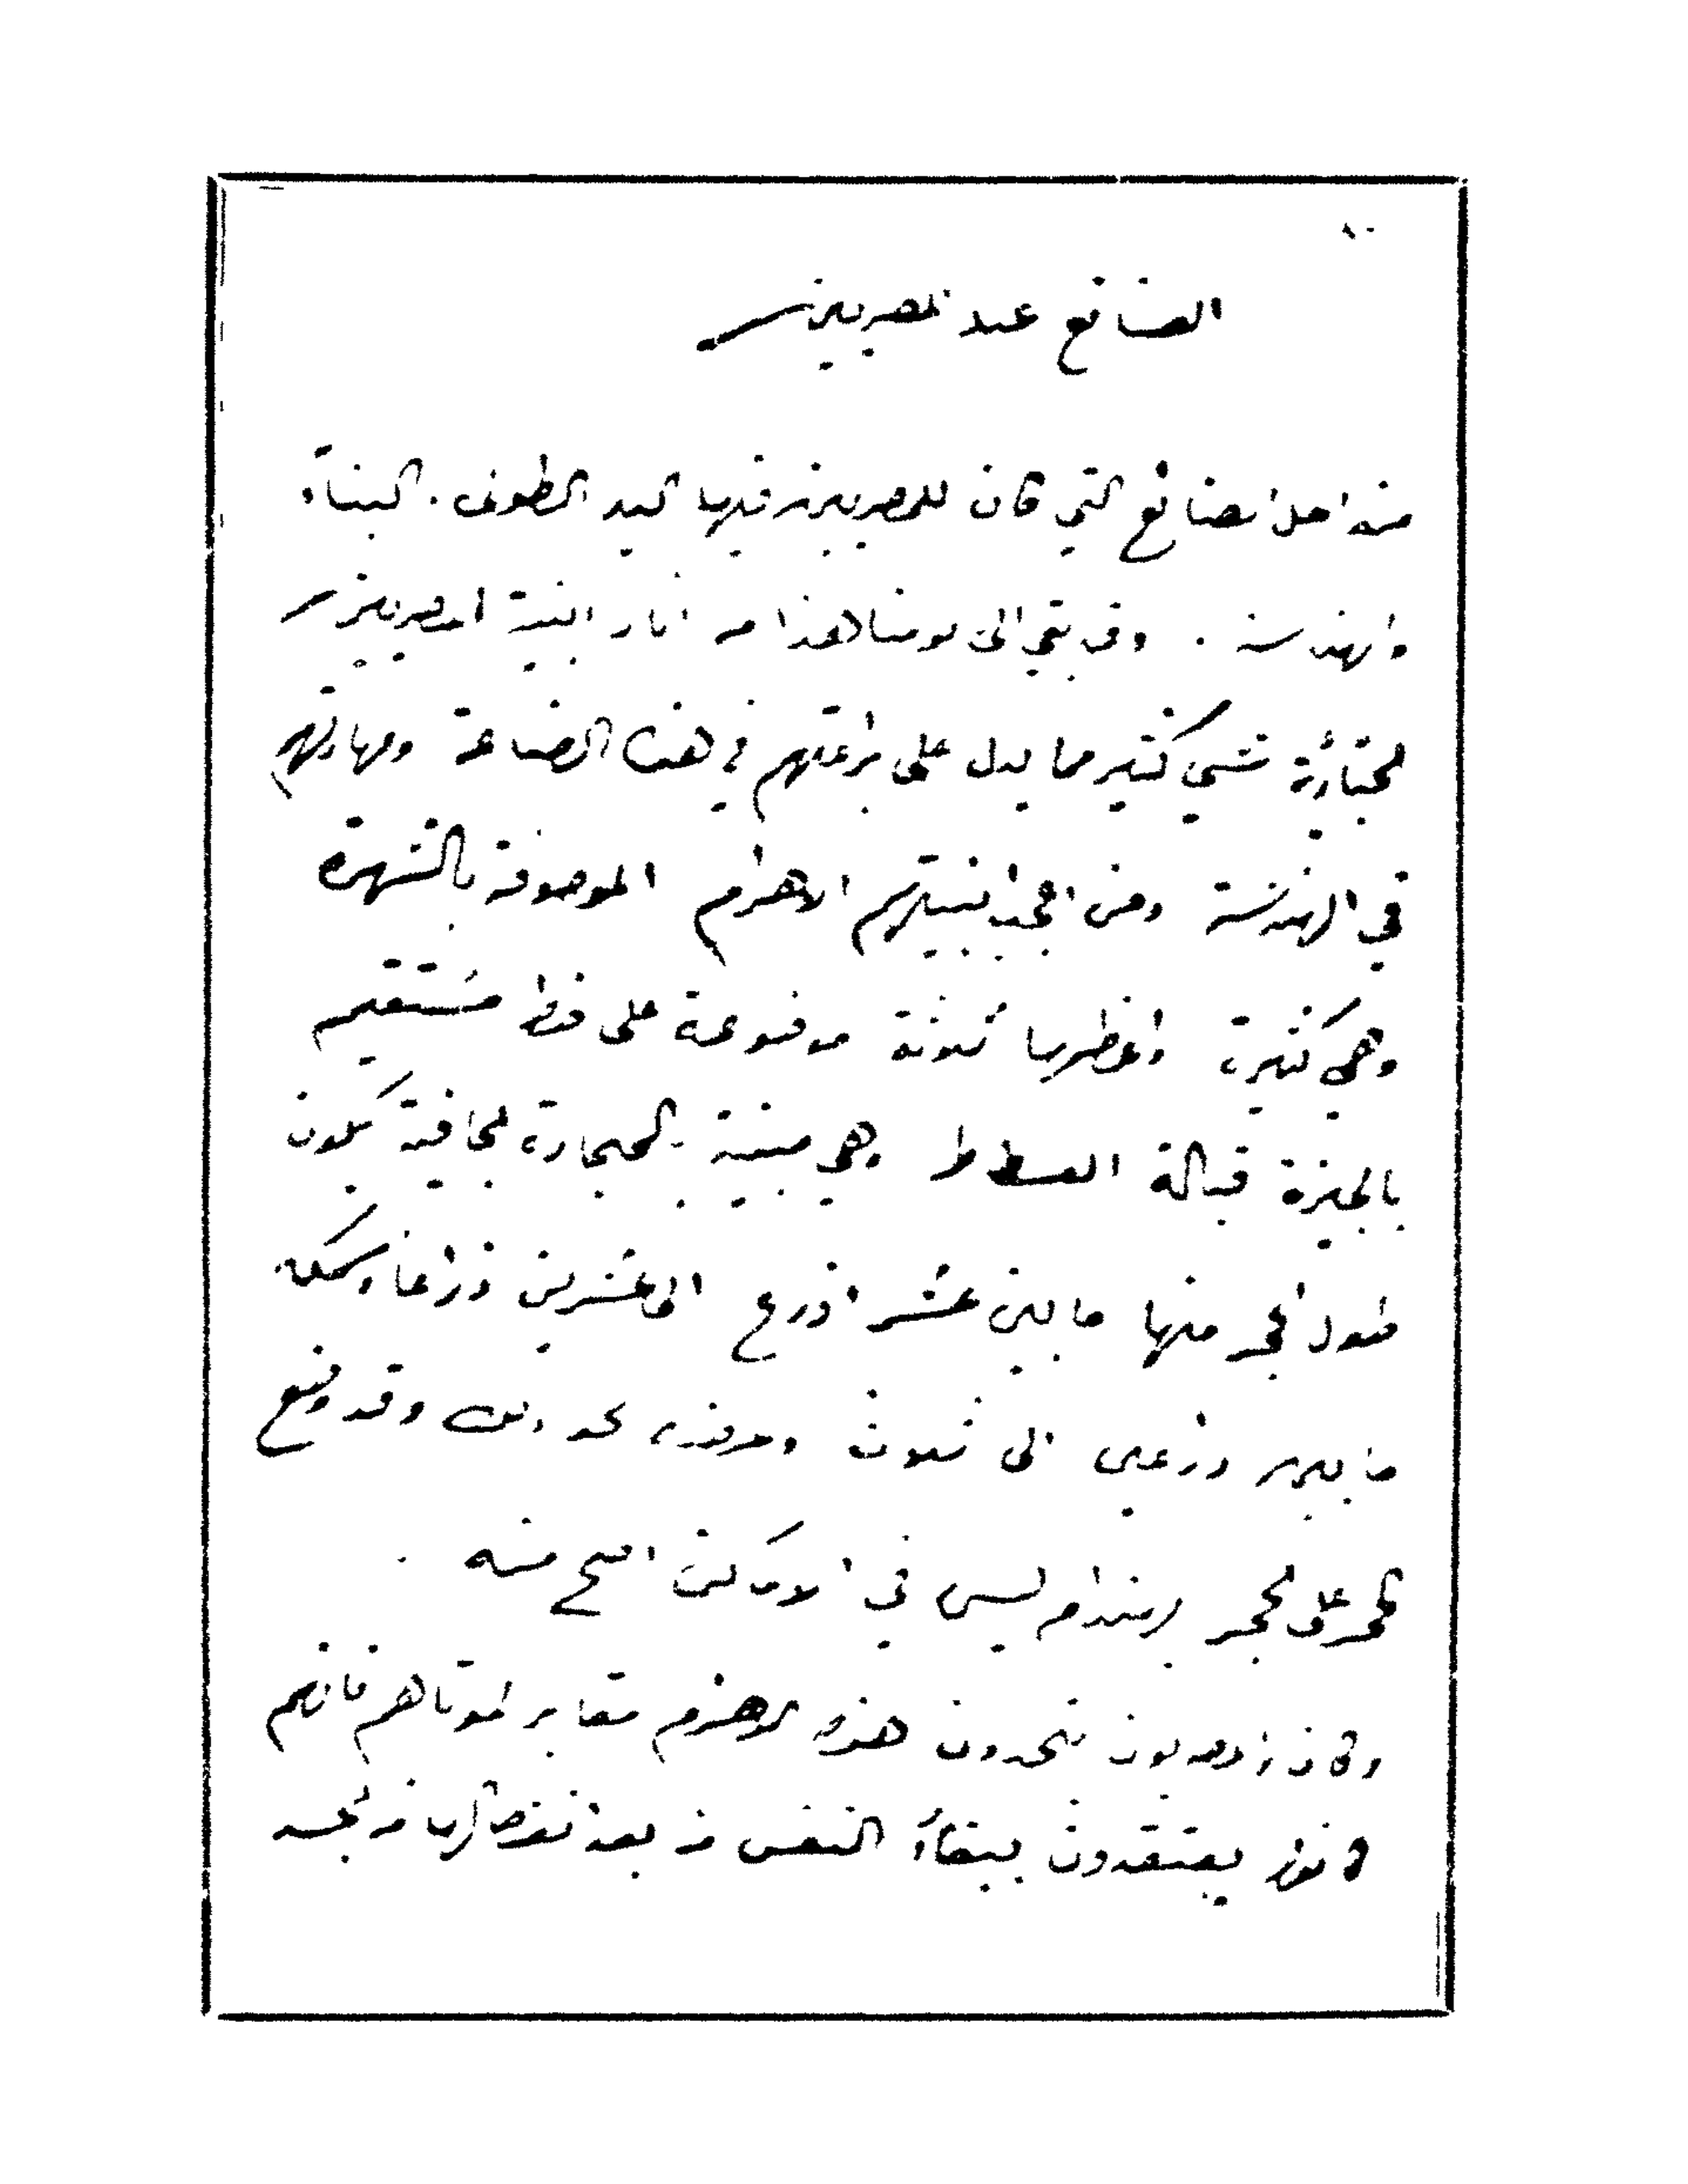 ٨٠
الصنائع عند المصريين
من اجل الصنائع التي كان للمصريين فيها اليد الطولى . البناء
والهندسة . وقد بقي الى يومنا هذا من اثار ابنية المصريين
شي كثير مما يدل على براعتهم في هذه الصناعة ومهارتهم
في الهندسة ومن اعجب ابنيتهم الاهرام الموصوفة بالشهرة
وهي كثيرة واعظمها ثلاثة موضوعة على خط مستقيم
بالجيزة قبالة الفسطاط وهي مبنية بالحجارة الجافية يكون
طول الحجر منها ما بين عشر اذرع الى عشرين ذراعا وسمكه
ما بين ذراعين الى ثلاث وعرضه نحو ذلك وقد وضع
الحجر على الحجر بهندام ليس في الامكان اصح منه .
وكان المصريون يتخذون هذه الاهرام مقابر لموتاهم فانهم
كانوا يعتقدون ببقاء النفس من بعد انفصالها من الجسد